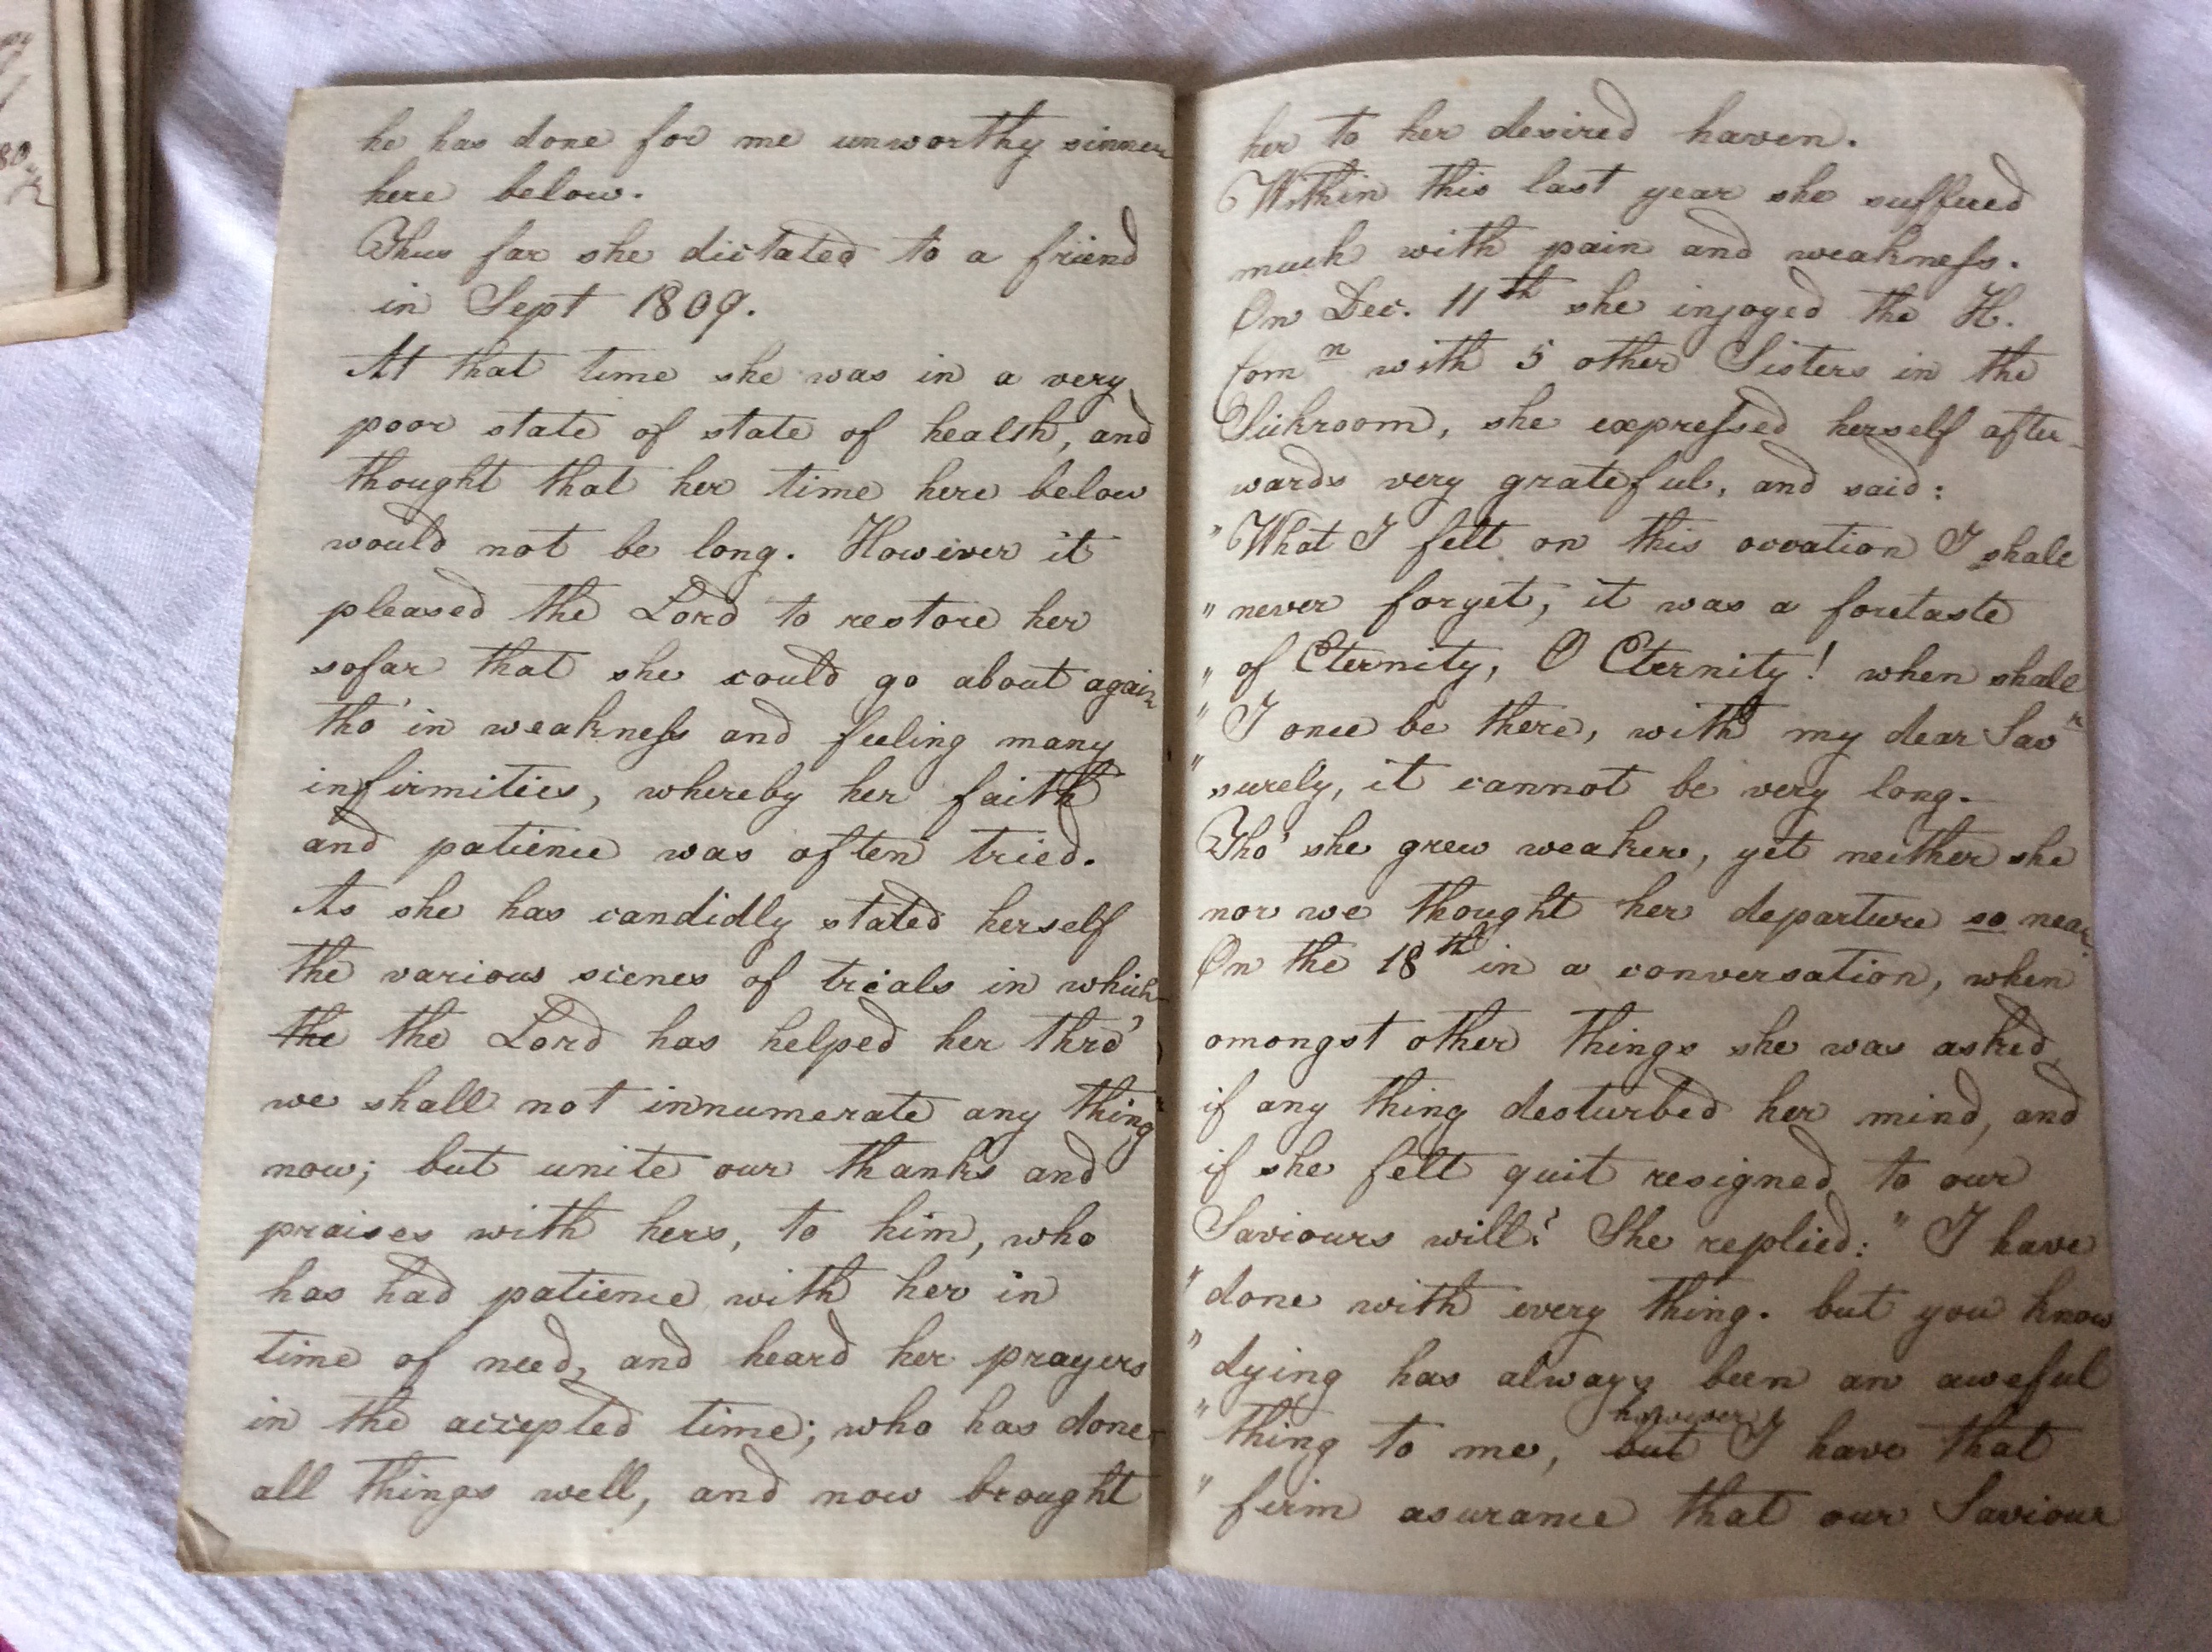 he has done for me unworthy sinner
here below.
Thus far she dictated to a friend
in Sept 1809.
At that time she was in a very
poor state of state of health, and
thought that her time here below
would not be long. However it
pleased the Lord to restore her
sofar that she could go about again
tho' in weakness and feeling many
infirmities, whereby her faith
and patience was often tried.
As she has candidly stated herself
the various scenes of trials in which
the the Lord has helped her thro'
we shall not innumerate any thing
now; but unite our thanks and
praises with hers, to him, who
has had patience with her in
time of need, and heard her prayers
in the accepted time; who has done
all things well, and now brought
her to her desired haven.
Within this last year she suffered
much with pain and weakness.
On Dec. 11th she injoyed the H.
Comn with 5 other Sisters in the
Sickroom, she expressed herself after-
wards very grateful, and said:
"What I felt on this occation I shall
" never forget, it was a foretaste
" of Eternity, O Eternity! when shall
" I once be there, with my dear Savr
" surely, it cannot be very long.
Tho' she grew weaker, yet neither she
nor we thought her departure so near.
On the 18th in a conversation, when
amongst other things she was asked,
if any thing desturbed her mind, and
if she felt quit resigned to our
Saviours will? She replied: " I have
" done with every thing. but you know
" dying has always been an aweful
" thing to me, but however I have that
" firm asurance that our Saviour